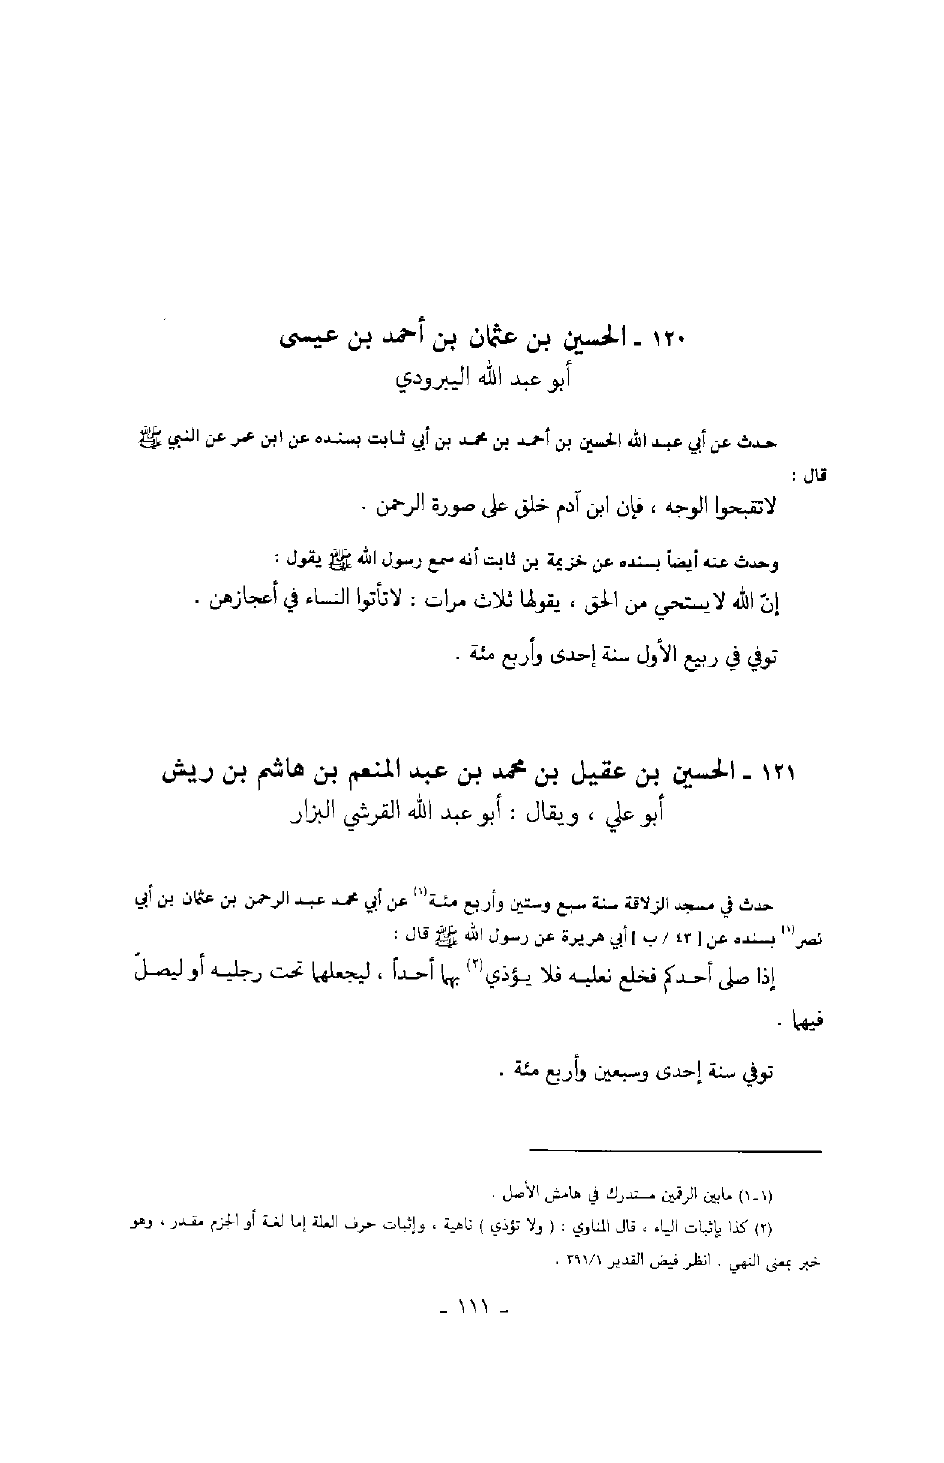 ١٢٠ ـ الحسين بن عثمان بن أحمد بن عيسى
أبو عبد الله اليبرودي
حدث عن أبي عبد الله الحسين بن أحمد بن محمد بن أبي ثابت بسنده عن ابن عمر عن النبي ﷺ
قال :
لاتقبحوا الوجه ، فإن ابن آدم خلق على صورة الرحمن .
وحدث عنه أيضاً بسنده عن خزيمة بن ثابت أنه سمع رسول الله ﷺ يقول :
إنّ الله لا يستحي من الحق ، يقولها ثلاث مرات : لاتأتوا النساء في أعجازهن .
توفي في ربيع الأول سنة إحدى وأربع مئة .
١٢١ ـ الحسين بن عقيل بن محمد بن عبد المنعم بن هاشم بن ريش
أبو علي ، ويقال : أبو عبد الله القرشي البزار
حدث في مسجد الزلاقة سنة سبع وستين وأربع مئة(١) عن أبي محمد عبد الرحمن بن عثمان بن أبي
نصر(١) بسنده عن [ ٤٣ / ب ] أبي هريرة عن رسول الله ﷺ قال :
إذا صلى أحدكم فخلع نعليه فلا يؤذي(٢) بها أحداً ، ليجعلهما تحت رجليه أو ليصلّ
فيهما .
توفي سنة إحدى وسبعين وأربع مئة .
(١-١) مابين الرقمين مستدرك في هامش الأصل .
(٢) كذا بإثبات الياء ، قال المناوي : ( ولا تؤذي ) ناهية ، وإثبات حرف العلة إما لغة أو الجزم مقدر ، وهو
خبر بمعنى النهي . انظر فيض القدير ٣٩١/١ .
ـ ١١١ ـ